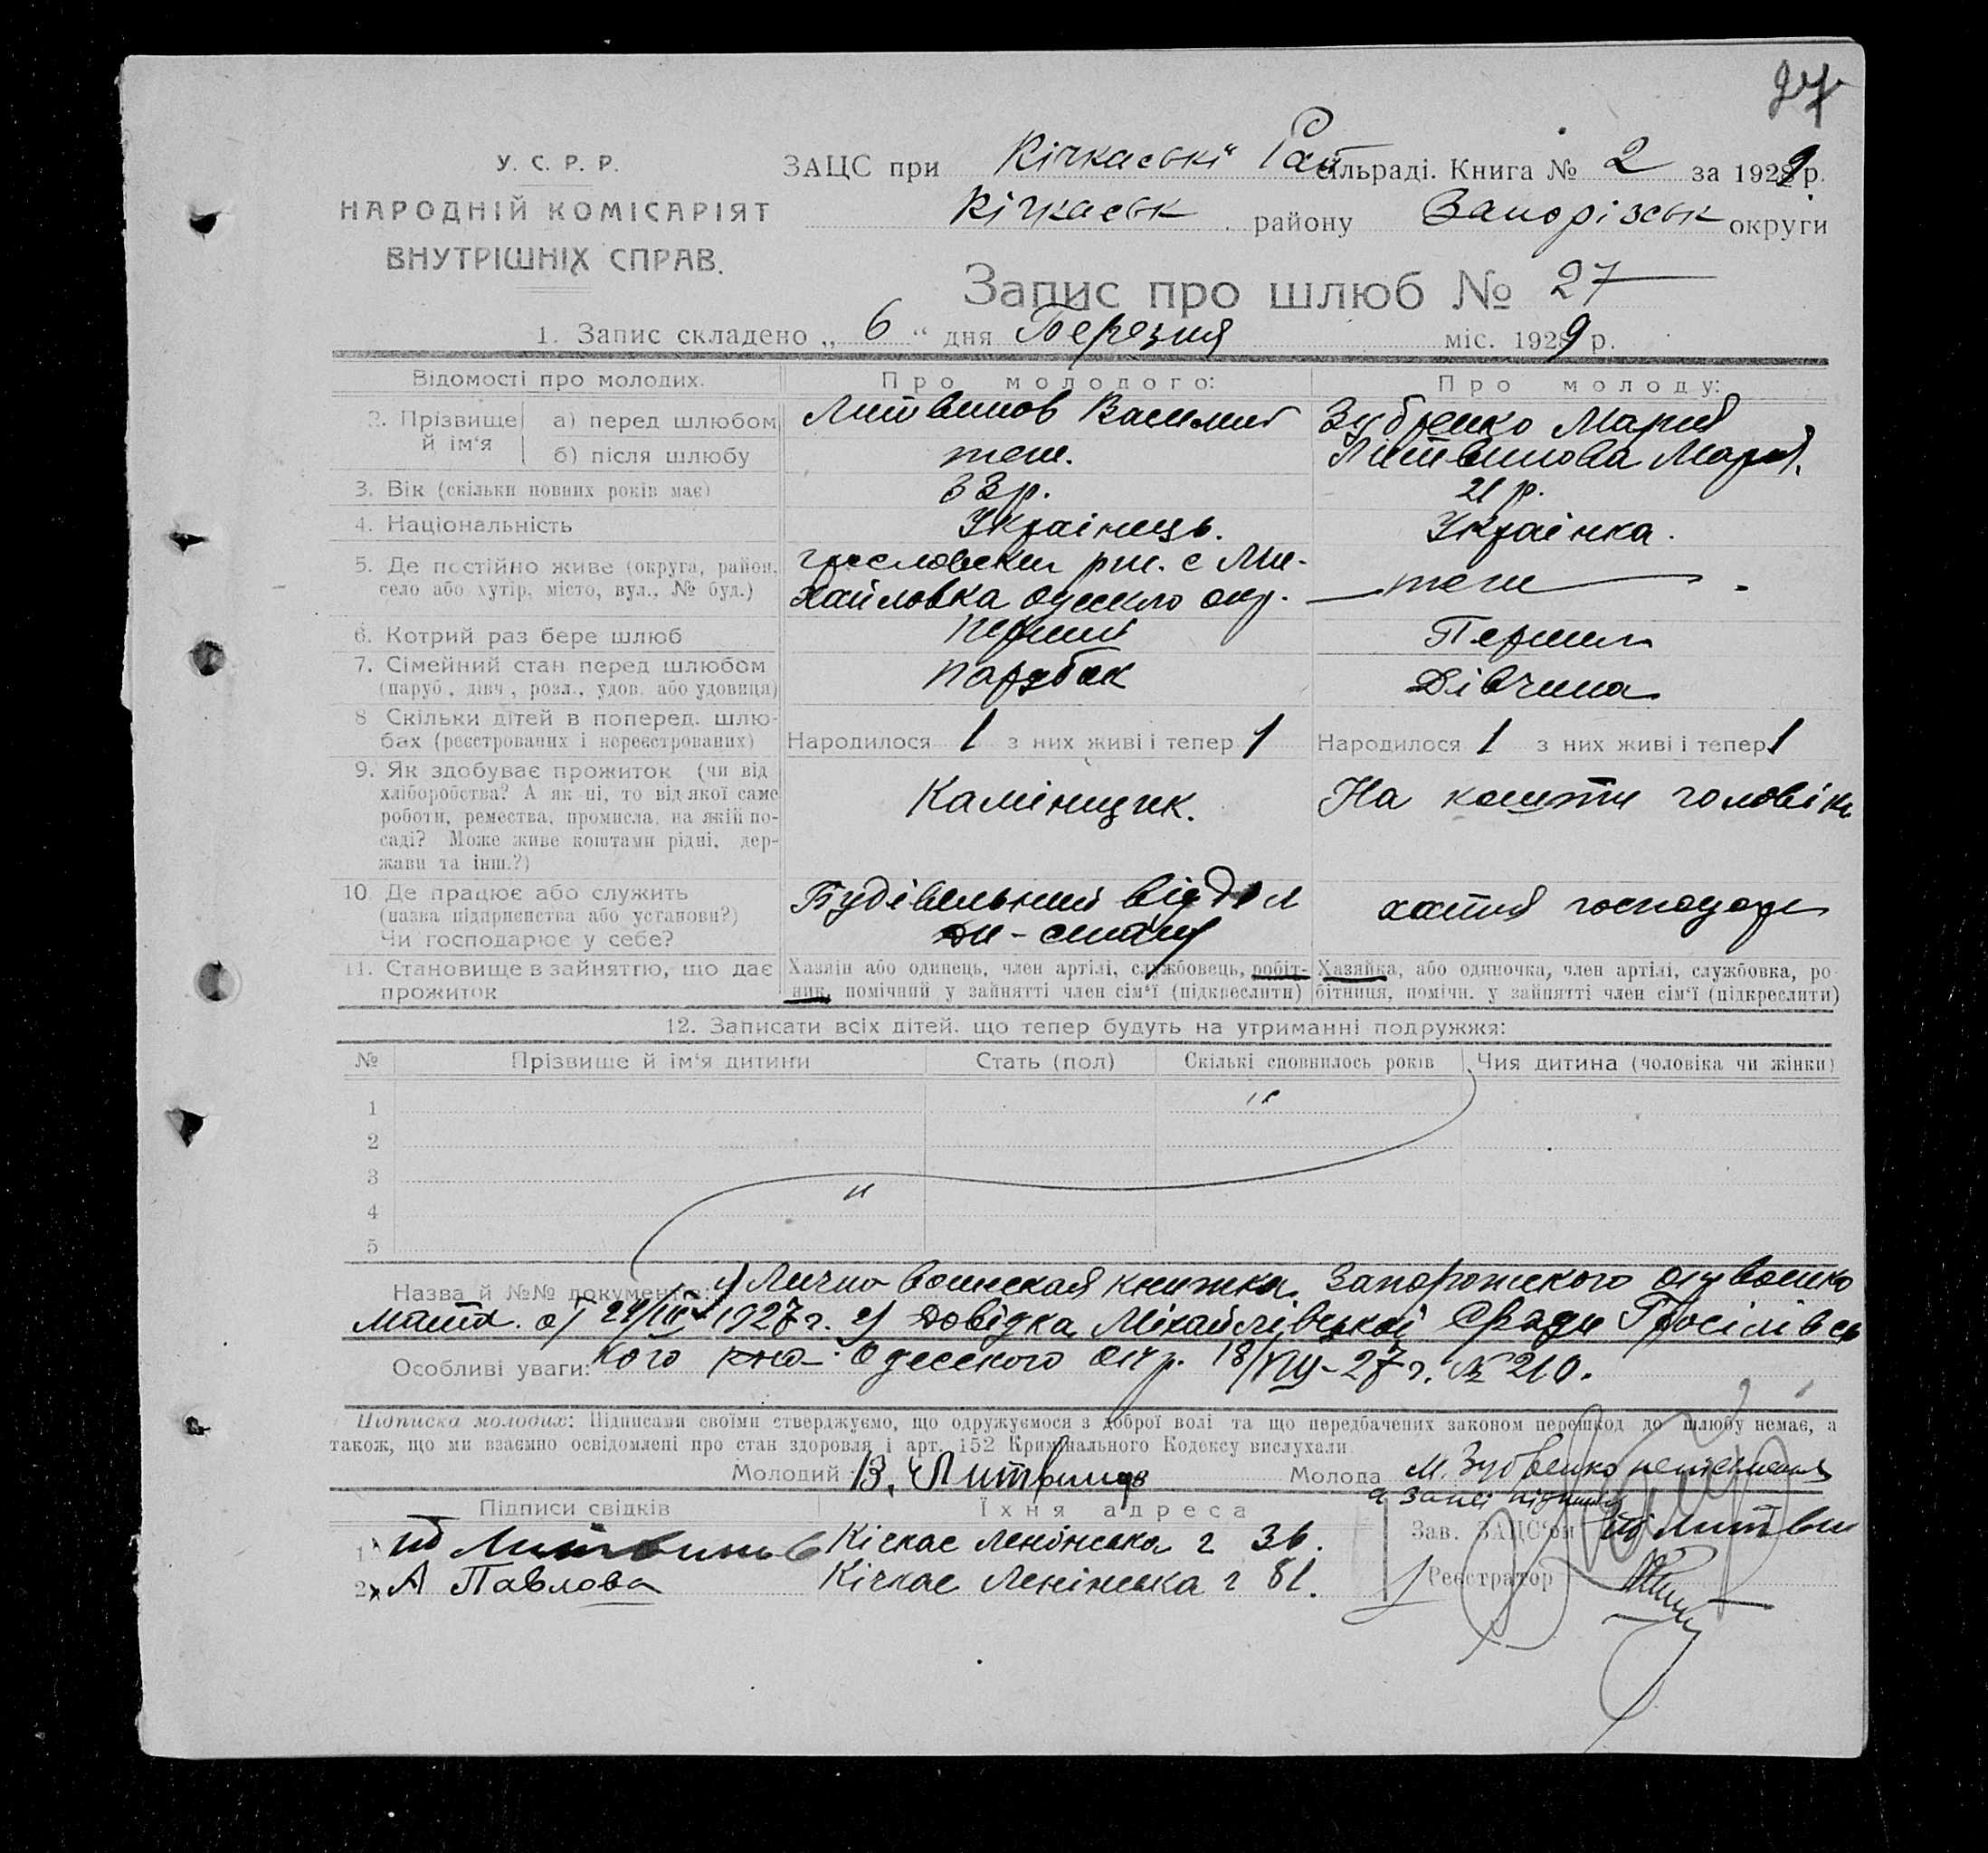 27
У. С. Р. Р.
НАРОДНІЙ КОМІСАРІЯТ
ВНУТРІШНІХ СПРАВ.
ЗАЦС при Кічкаські Рай сільраді. Книга № 2 за 1929 р.
Кічкаськ району Запорізськ округи
Запис про шлюб № 27
1. Запис складено „ 6 “ дня Березня міс. 1929 р.
Відомості про молодих. Про молодого: Про молоду:
2. Прізвище й ім'я а) перед шлюбом Литвинов Василий Зубренко Мария
б) після шлюбу теж. Литвинова Мария.
3. Вік (скільки повних років має) 33 р. 21 р.
4. Національність Українець. Українка.
5. Де постійно живе (округа, район, село або хутір, місто, вул., № буд.) с Ми-
хайловка Одеско окр. — теж —
6. Котрий раз бере шлюб перший Перший
7. Сімейний стан перед шлюбом парубок Дівчина
(паруб., дівч., розл., удов. або удовиця)
8 Скільки дітей в поперед. шлю-
бах (реєстрованих і нереєстрованих) Народилося 1 з них живі і тепер 1 Народилося 1 з них живі і тепер 1
9. Як здобуває прожиток (чи від
хліборобства? А як ні, то від якої саме
роботи, ремества, промисла, на якій по- Камінщик. На кошти чоловіка
саді? Може живе коштами рідні, дер-
жави та інш.?)
10. Де працює або служить Будівельний відділ хатня господар
(назва підприємства або установи?)
Чи господарює у себе?
11. Становище в зайняттю, що дає Хазяїн або одинець, член артілі, службовець, робіт- Хазяйка, або одиночка, член артілі, службовка, ро
прожиток ник, помічний у зайнятті член сім'ї (підкреслити) бітниця, помічн. у зайнятті член сім'ї (підкреслити)
12. Записати всіх дітей, що тепер будуть на утриманні подружжя:
№ Прізвище й ім'я дитини Стать (пол) Скількі сповнилось років Чия дитина (чоловіка чи жінки)
1 "
2
3 "
4
5
Назва й №№ документів: 1) Лично воинская книжка Запорожского
от 1927 г. 2) Довідка Міхайлівської с/ради Гросілівсь
Особливі уваги: кого р-на Одесского окр. 18/VIII-27 г. № 210.
Підписка молодих: Підписами своїми стверджуємо, що одружуємося з доброї волі та що передбачених законом перешкод до шлюбу немає, а
також, що ми взаємно освідомлені про стан здоровля і арт. 152 Кримінального Кодексу вислухали.
Молодий В. Литвинов Молода М. Зубренко
Підписи свідків Їхня адреса
1 Литвинов Кічкас Ленінська 2 36. Зав. ЗАЦС'ом
2 А Павлова Кічкас Ленінська 2 81. Реєстратор